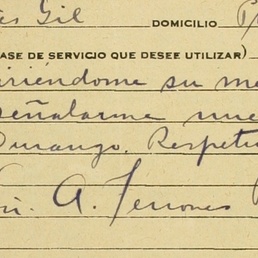 Gil DOMICILIO
ASE DE SERVICIO QUE DESEE UTILIZAR)
riéndome su me
eñalarme nue
Durango. Respetu
A. Terrones